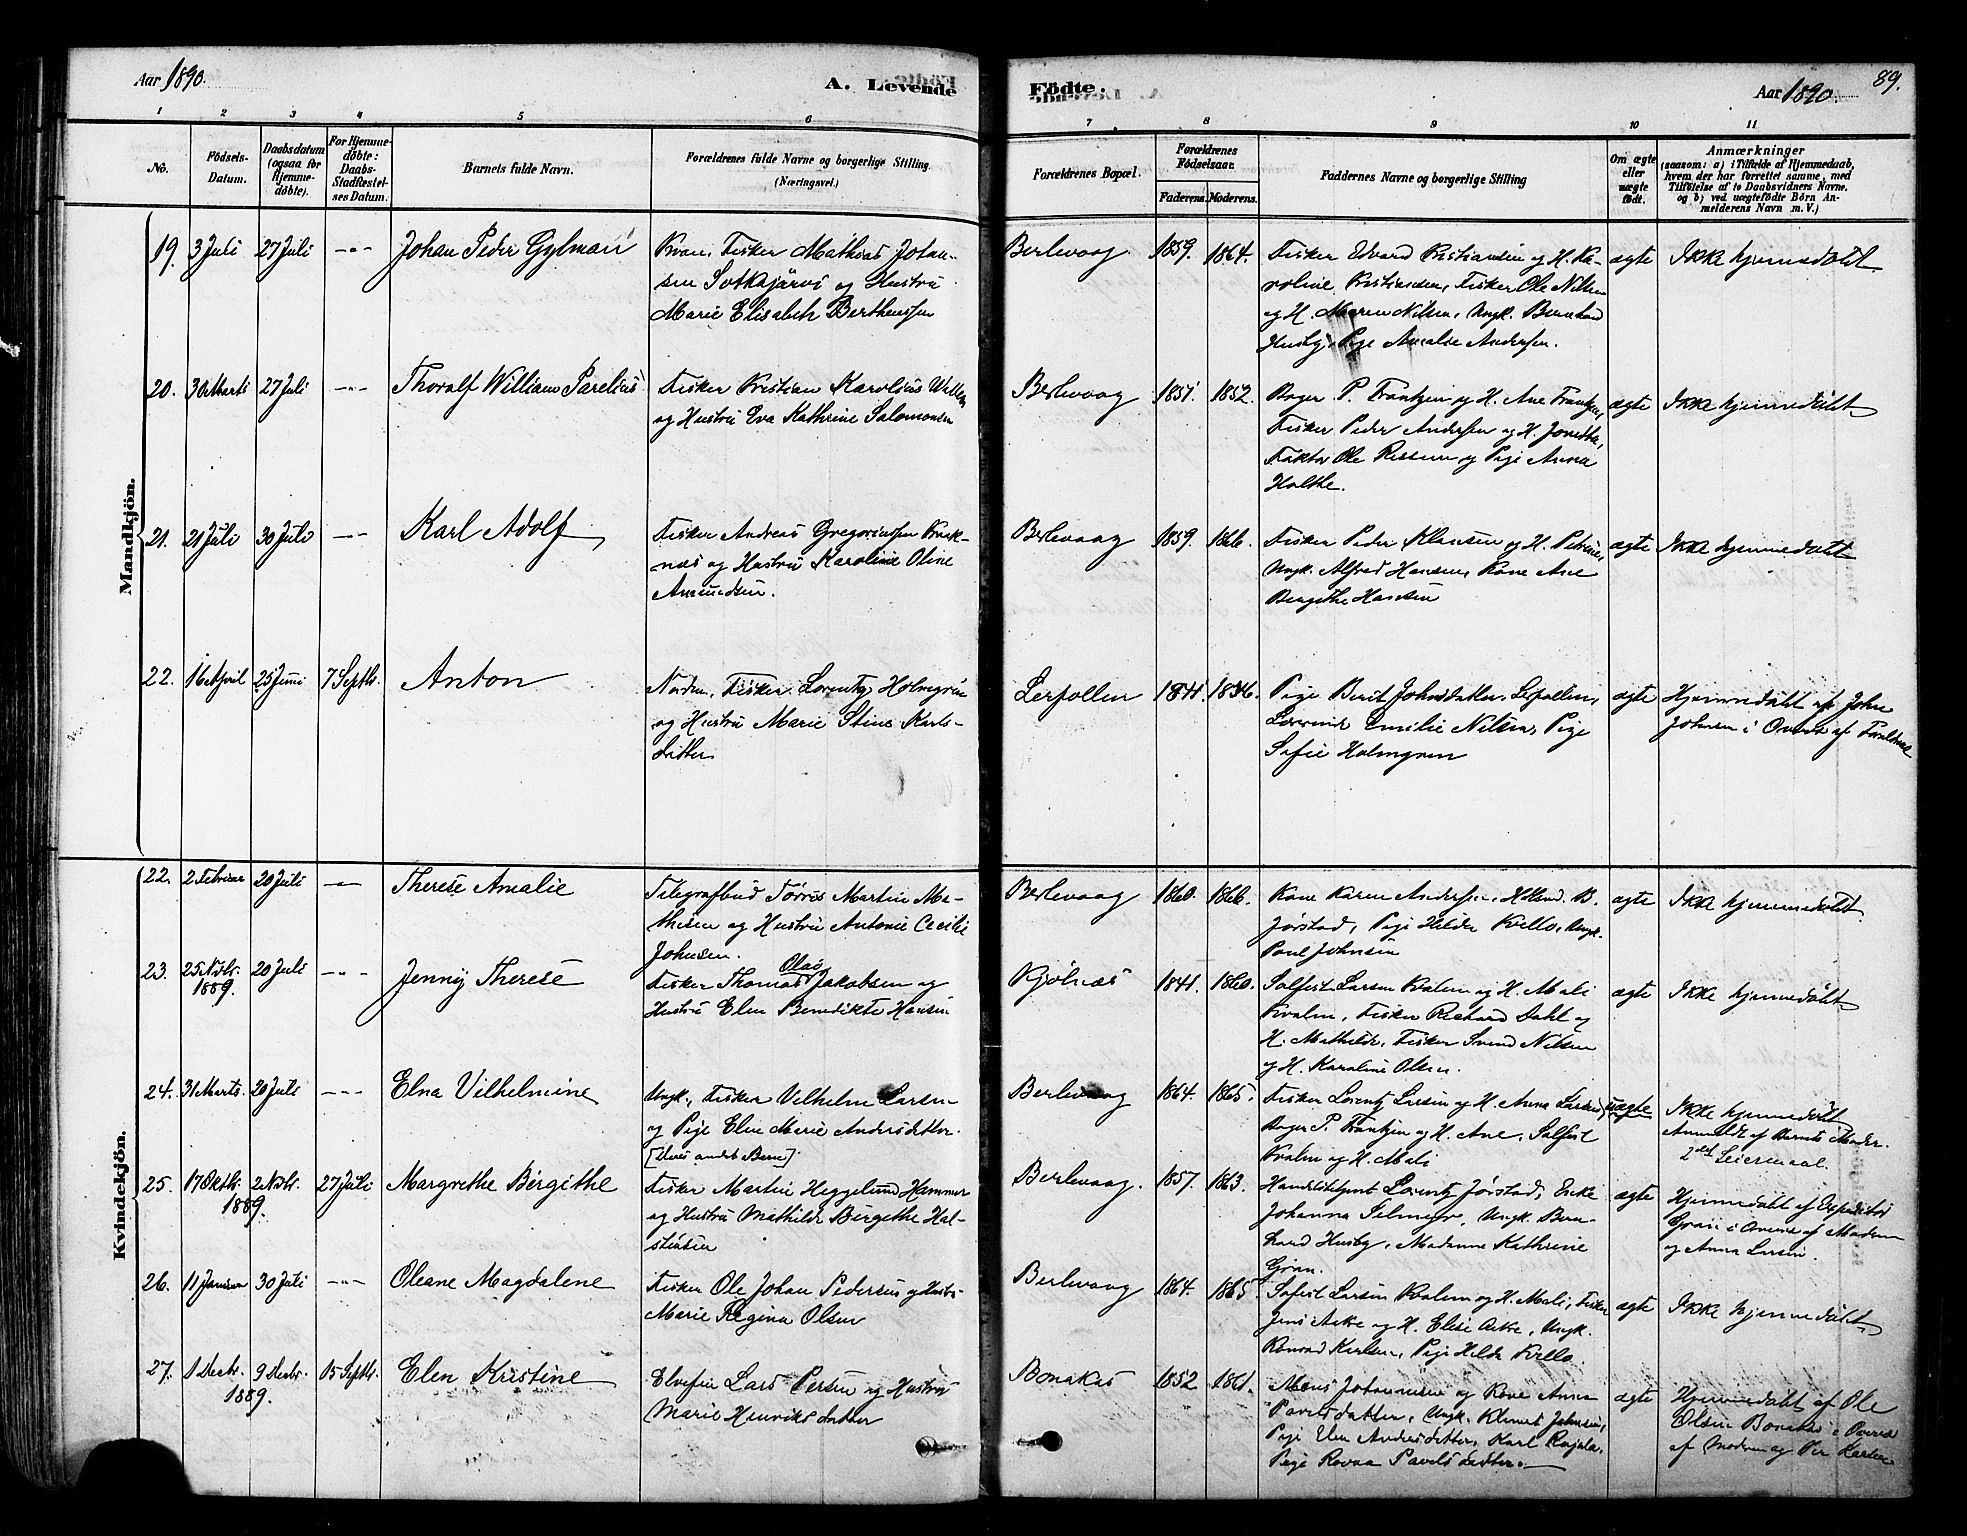 Aar 1890.
A. Levende
Födte.
Aar 1890.
89.
1 2 3 4 5 6 7 8 9 10 11
No.
Födsels-
Datum.
Daabsdatum
(ogsaa for
Hjemme-
døbte).
For Hjemme-
døbte:
Daabs-
Stadfæstel-
ses Datum.
Barnets fulde Navn.
Forældrenes fulde Navne og borgerlige Stilling
(Næringsvei.)
Forældrenes Bopæl.
Forældrenes
Födselsaar.
Faderens. Moderens.
Faddernes Navne og borgerlige Stilling
Om ægte
eller
uægte
født.
Anmærkninger
(saasom: a) i Tilfælde af Hjemmedaab,
hvem der har forrettet samme, med
Tilføielse af to Daabsvidners Navne.
og b) ved uægtefødte Börn An-
melderens Navn m. V.)
Mandkjön.
19. 3 Juli 27 Juli -"- Johan Peder Gylman
Kvæn. Fisker Mathias Johan-
sen Sotkajärvi og Hustru
Marie Elisabeth Berthenssen
Berlevaag 1859. 1864.
Fisker Edvard Kristiansen og H. Ka-
roline Kristiansen, Fisker Ole Nilsen
og H. Maren Nilsen, Ungk. Bernhard
Husby, Pige Amalie Andersen.
ægte Ikke hjemmedøbt
20. 30 Marts 27 Juli -"- Thoralf William Parelius
Fisker Kristian Karolius Willem
og Hustru Eva Kathrine Salomonsen
Berlevaag 1851. 1852.
Bager P. Frantzen og H. Ane Frantzen,
Fisker Peder Andersen og H. Jonetta,
Faktor Ole Rissum og Pige Anna
Holthe.
ægte Ikke hjemmedøbt
21. 21 Juli 30 Juli -"- Karl Adolf
Fisker Andreas Gregoriussen Kvæk-
næs og Hustru Karoline Oline
Amundsen.
Berlevaag 1859. 1866.
Fisker Peder Klausen og H. Petrine,
Ungk. Alfred Hansen, Kone Ane
Bergithe Hansen
ægte Ikke hjemmedøbt
22. 16 April 25 Juni 7 Septbr. Anton
Nordm. Fisker Lorentz Holmgren
og Hustru Marie Stine Karls-
datter
Leirpollen 1841. 1846.
Pige Berit Johnsdatter, Leirpollen,
Emilie Nilsen, Pige
Sofie Holmgren
ægte Hjemmedøbt af John
Johnsen i Overv. af Forældrene
Kvindekjön.
22. 2 Februar 20 Juli -"- Therese Amalie
Telegrafbud Tørres Martin Ma-
thisen og Hustru Antonie Cecilie
Johnsen.
Berlevaag 1860. 1866.
Kone Karen Andersen, Hdlend. B.
Jørstad, Pige Hilda Kvello, Ungk.
Paul Johnsen
ægte Ikke hjemmedøbt
23. 25 Novbr. 20 Juli -"- Jenny Therese
1889.
Olaus
Fisker Thomas Jakobsen og
Hustru Elen Benedikte Hansen
Kjølnæs 1841. 1860.
Solfest Larsen Kvalm og H. Mali
Kvalm, Fisker Richard Dahl og
H. Mathilde, Fisker Svend Nilsen
og H. Karoline Olsen.
ægte Ikke hjemmedøbt
24. 31 Marts. 20 Juli -"- Elna Vilhelmine
Ungk., Fisker Vilhelm Larsen
og Pige Eline Marie Andersdatter.
[deres andet Barn].
Berlevaag 1864. 1865.
Fisker Lorentz Larsen og H. Anna Larsen,
Bager P. Frantzen og H. Ane, Solfest
Kvalm og H. Mali
uægte Ikke hjemmedøbt
Anmeldt af Barnets Moder.
2det Leiermaal.
25. 17 Oktbr. 2 Novbr. 27 Juli Margrethe Bergithe
1889.
Fisker Martin Heggelund Hammer
og Hustru Mathilde Bergithe Hal-
stensen
Berlevaag. 1857. 1863.
Handelsbetjent Lorentz Jørstad, Enke
Johanna Selmer, Ungk. Bern-
hard Husby, Madame Kathrine
Gran.
ægte Hjemmedøbt af Expeditør
Gran i Overv. af Moderen
og Anna Larsen.
26. 11 Januar 30 Juli -"- Oleane Magdalene
Fisker Ole Johan Pedersen og Hustru
Marie Regina Olsen
Berlevaag 1864. 1865
Solfest Larsen Kvalm og H. Mali, Fisker
Jens Aske og H. Elise Aske, Ungk.
Konrad Karlsen, Pige Hilda Kvello.
ægte Ikke hjemmedøbt
27. 1 Decbr. 9 Decbr. 15 Septbr. Elen Kristine
1889.
Elvefin Lars Persen og Hustru
Marie Henriksdatter
Bonakas 1852 1861.
Mons Johannesen og Kone Anna
Pavelsdatter, Ungk. Klemet Johnsen,
Pige Elen Andersdatter, Karl Rajala,
Pige Ravna Pavelsdatter.
ægte Hjemmedøbt af Ole
Olsen Bonakas i Overv.
af Moderen og Per Karlsen